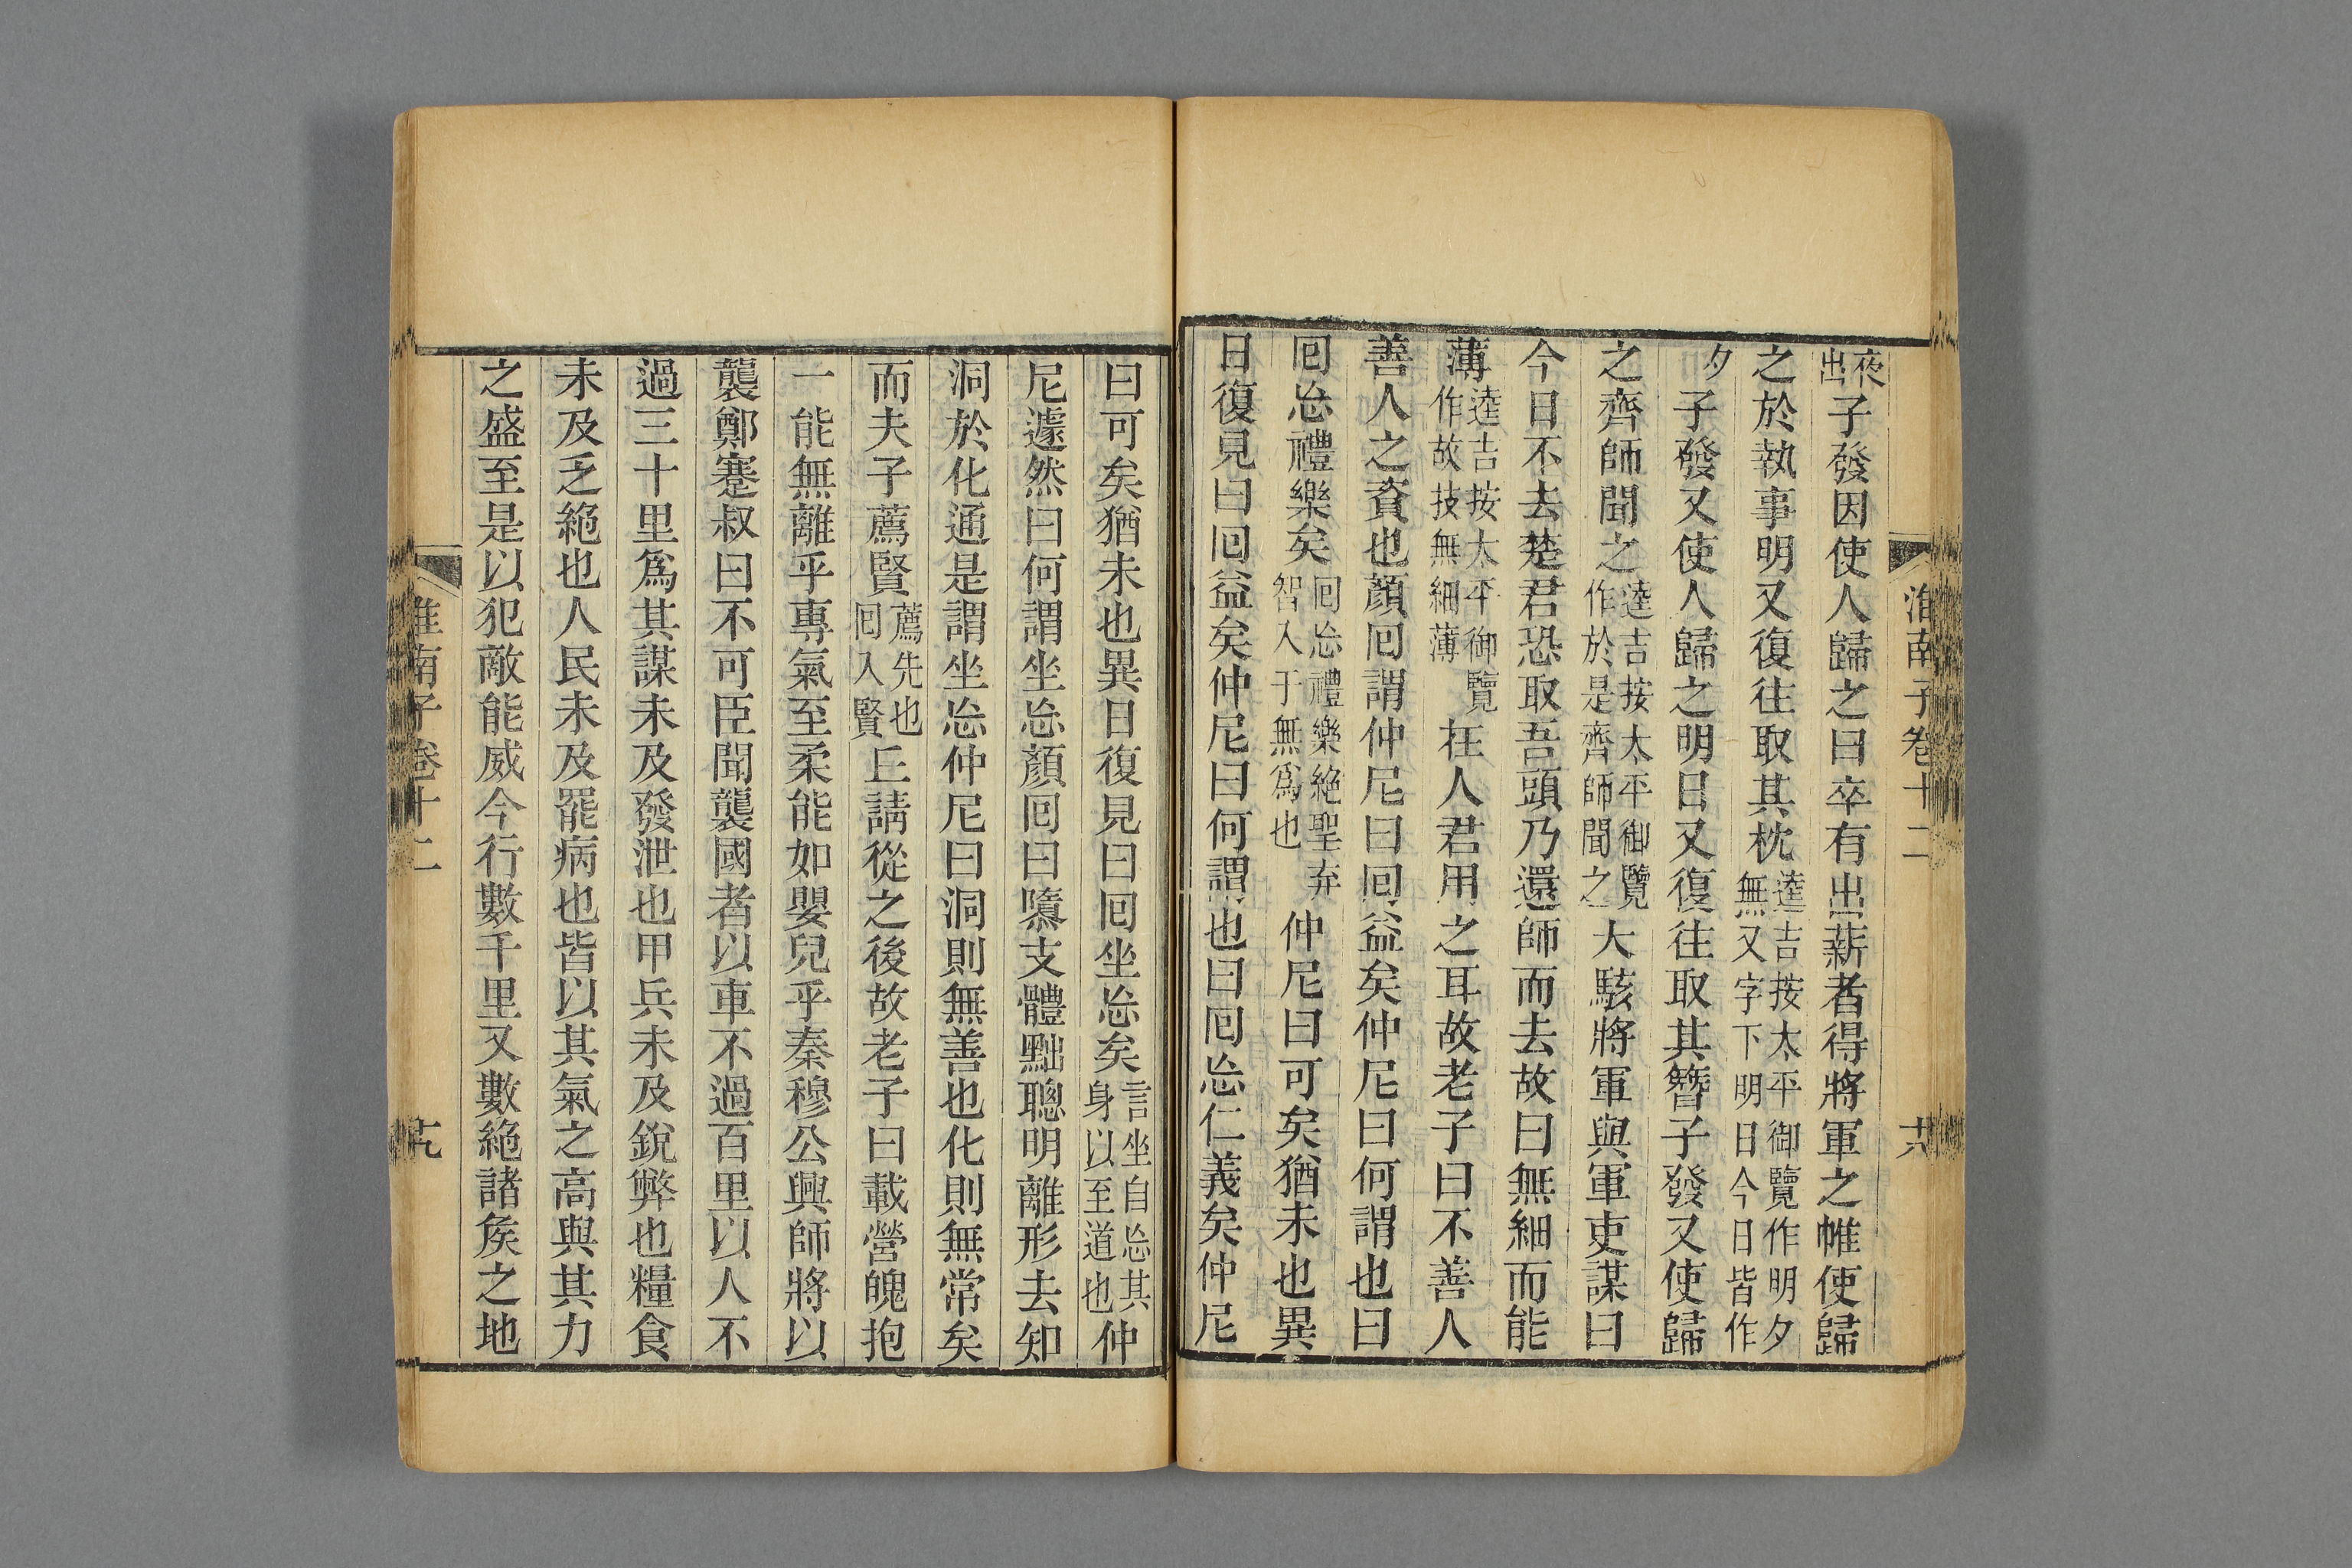 淮南子卷十二 十八
夜出子發因使人歸之曰卒有出薪者得將軍之帷使歸
之於執事明又復往取其枕逵吉按太平御覽作明夕無又字下明日今日皆作
夕子發又使人歸之明日又復往取其簪子發又使歸
之齊師聞之逵吉按太平御覽作於是齊師聞之大駭將軍與軍吏謀曰
今日不去楚君恐取吾頭乃還師而去故曰無細而能
薄逵吉按太平御覽作故技無細薄在人君用之耳故老子曰不善人
善人之資也顏回謂仲尼曰回益矣仲尼曰何謂也曰
回忘禮樂矣回忘禮樂絶聖弃智入于無爲也仲尼曰可矣猶未也異
日復見曰回益矣仲尼曰何謂也曰回忘仁義矣仲尼
曰可矣猶未也異日復見曰回坐忘矣言坐自忘其身以至道也仲
尼遽然曰何謂坐忘顏回曰隳支體黜聰明離形去知
洞於化通是謂坐忘仲尼曰洞則無善也化則無常矣
而夫子薦賢薦先也回入賢丘請從之後故老子曰載營魄抱
一能無離乎專氣至柔能如嬰兒乎秦穆公興師將以
襲鄭蹇叔曰不可臣聞襲國者以車不過百里以人不
過三十里爲其謀未及發泄也甲兵未及銳弊也糧食
未及乏絶也人民未及罷病也皆以其氣之高與其力
之盛至是以犯敵能威今行數千里又數絶諸矦之地
淮南子卷十二 十九